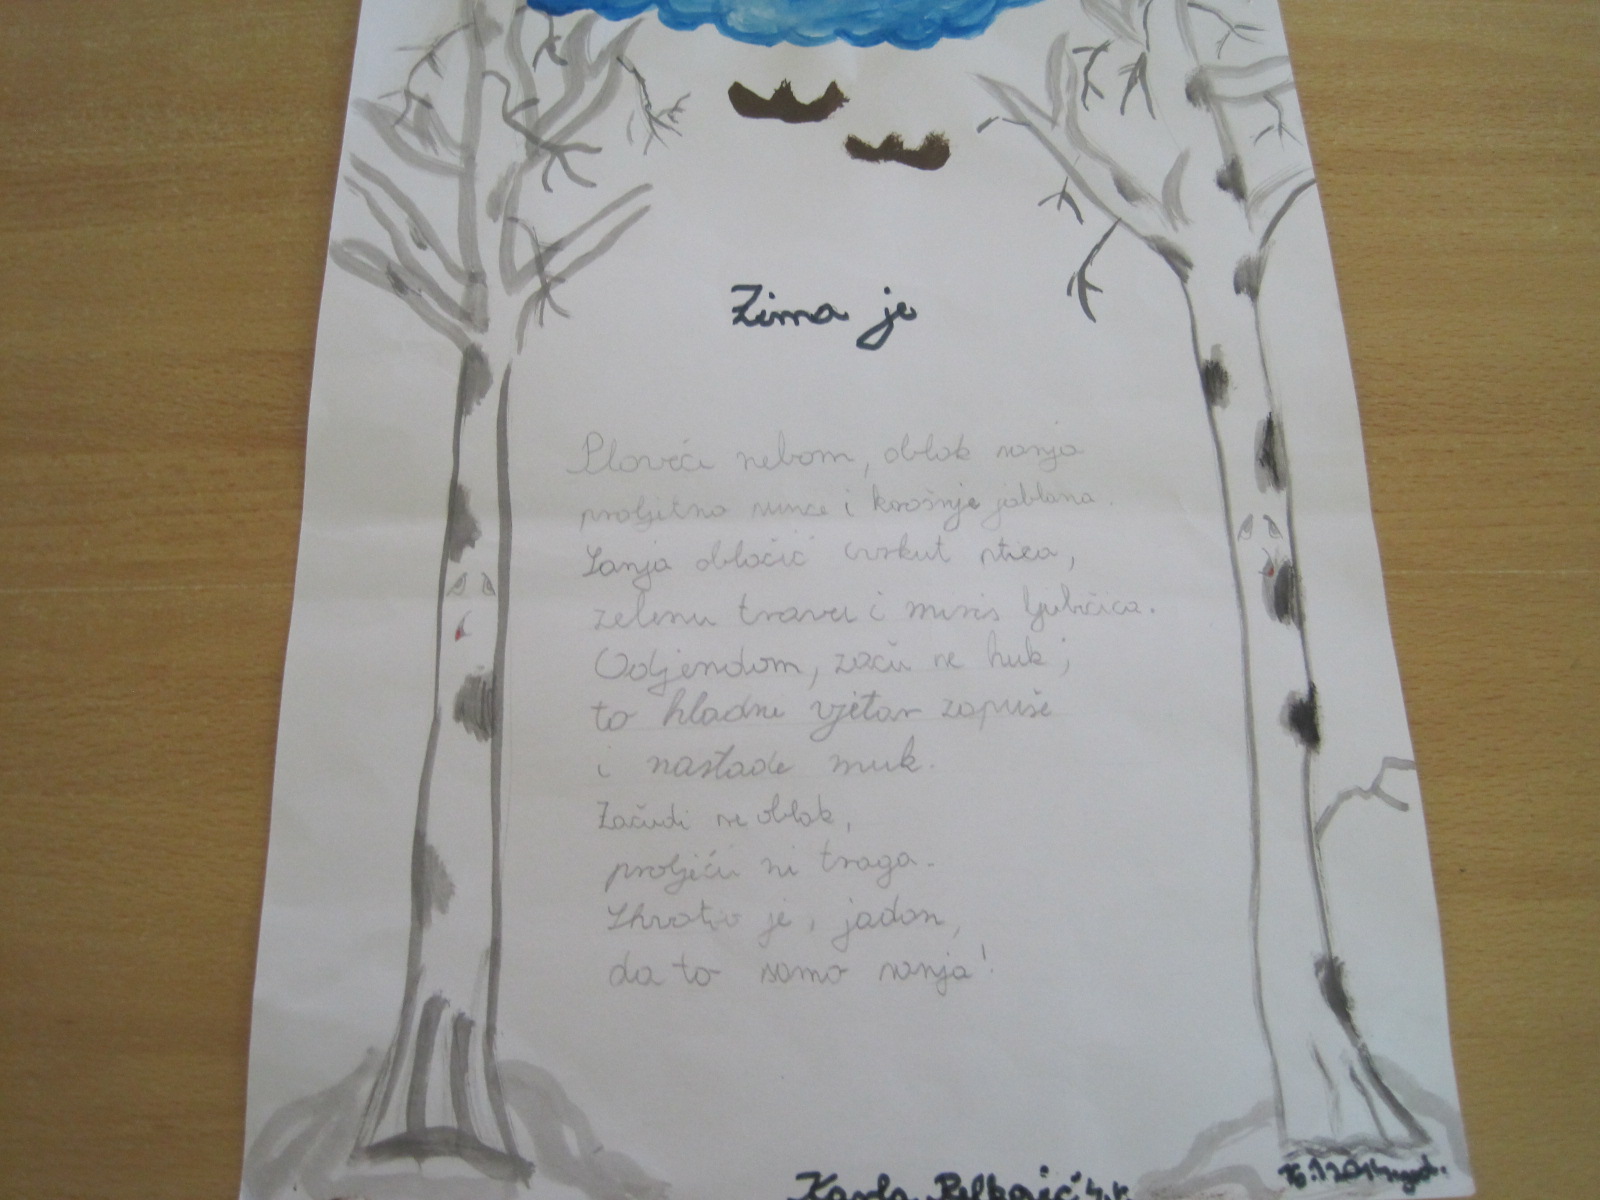 Zima je
Ploveći nebom, oblak sanja
proljetno sunce i krošnje jablana.
Sanja oblačić cvrkut ptica,
zelenu travu i miris ljubičica.
Odjendom, začu se huk;
to hladni vjetar zapuše
i nastade muk.
Začudi se oblak,
proljeću ni traga.
Shvatio je, jadan,
da to samo sanja!
Karla
16.1.2014.god.